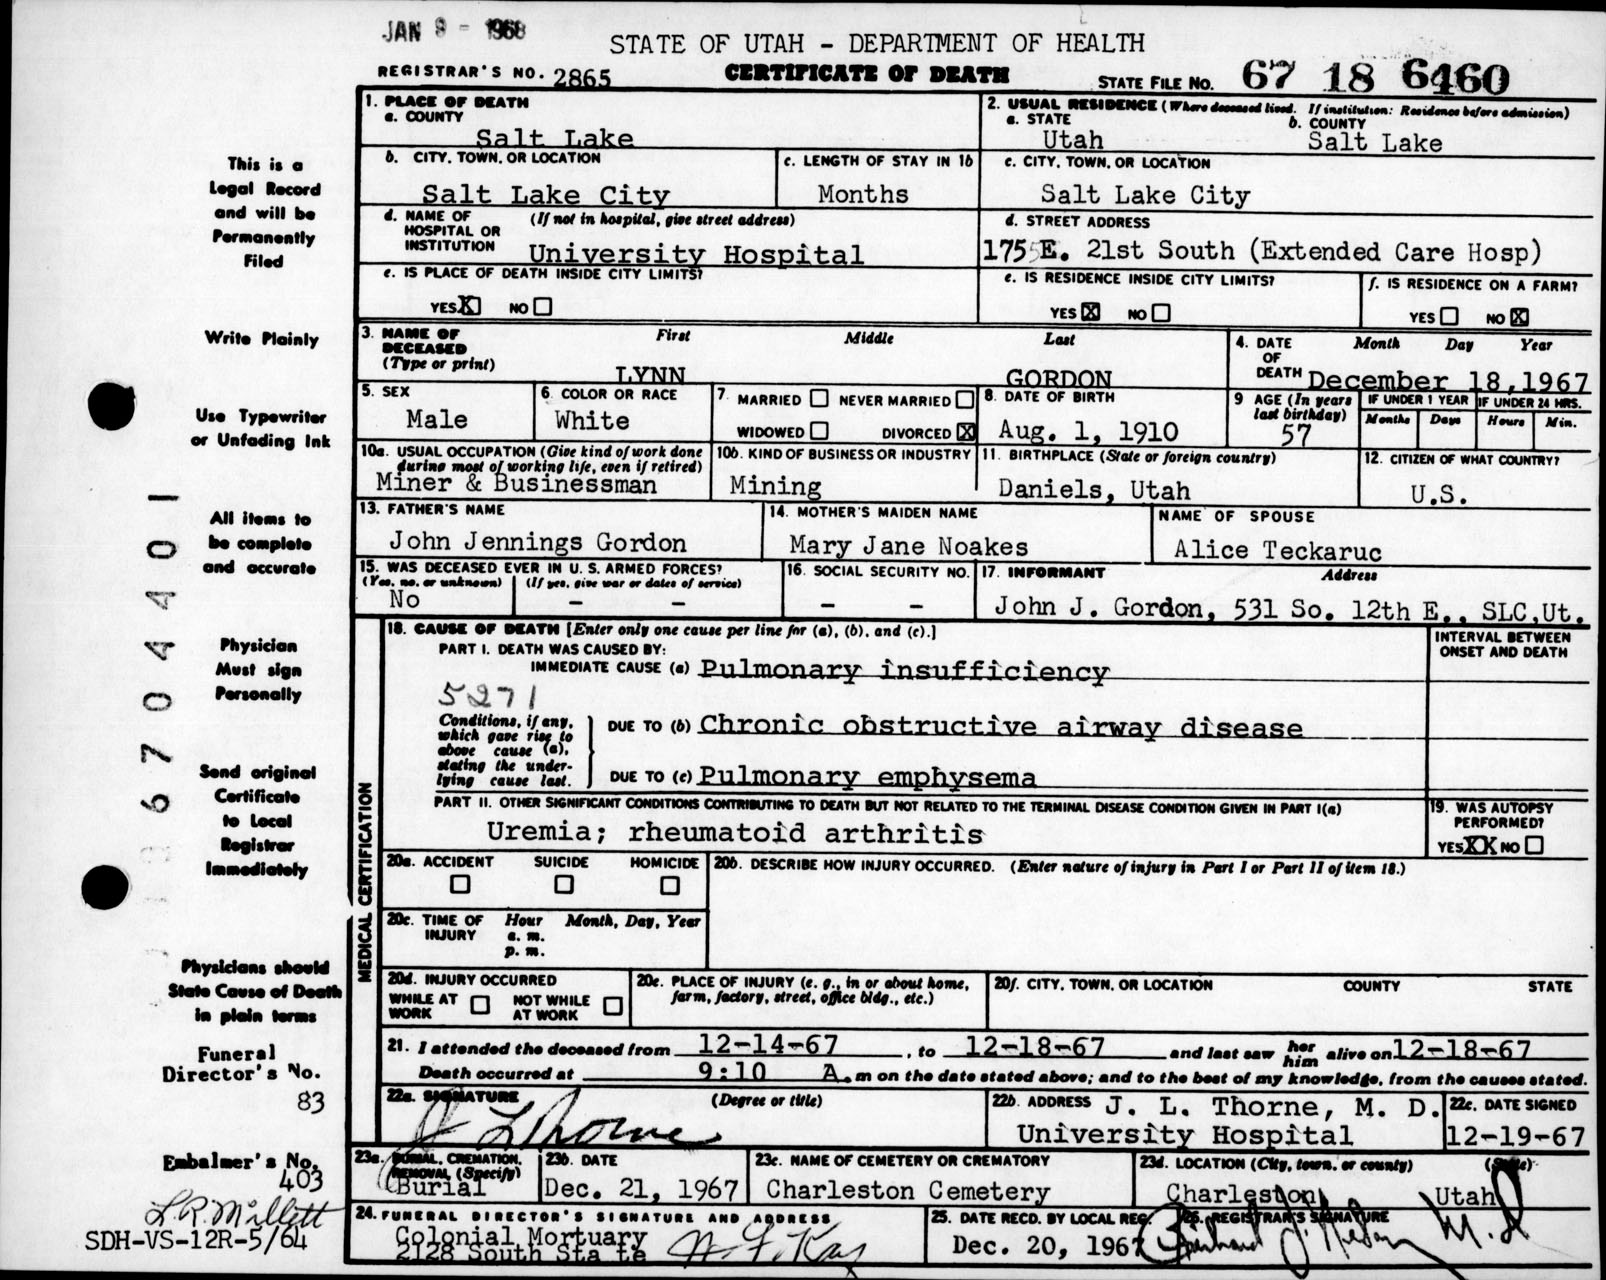 JAN 9 - 1968
STATE OF UTAH - DEPARTMENT OF HEALTH
REGISTRAR'S NO. 2865 CERTIFICATE OF DEATH STATE FILE NO. 67 18 6460
1. PLACE OF DEATH
a. COUNTY
Salt Lake
2. USUAL RESIDENCE (Where deceased lived. If institution: Residence before admission)
a. STATE b. COUNTY
Utah Salt Lake
b. CITY, TOWN, OR LOCATION
Salt Lake City
c. LENGTH OF STAY IN 1b
Months
c. CITY, TOWN, OR LOCATION
Salt Lake City
d. NAME OF HOSPITAL OR INSTITUTION (If not in hospital, give street address)
University Hospital
d. STREET ADDRESS
1755 E. 21st South (Extended Care Hosp)
e. IS PLACE OF DEATH INSIDE CITY LIMITS?
YES X NO
e. IS RESIDENCE INSIDE CITY LIMITS?
YES X NO
f. IS RESIDENCE ON A FARM?
YES NO X
3. NAME OF DECEASED (Type or print) First Middle Last
LYNN GORDON
4. DATE OF DEATH Month Day Year
December 18, 1967
5. SEX
Male
6. COLOR OR RACE
White
7. MARRIED NEVER MARRIED
WIDOWED DIVORCED X
8. DATE OF BIRTH
Aug. 1, 1910
9 AGE (In years last birthday)
57
IF UNDER 1 YEAR IF UNDER 24 HRS.
Months Days Hours Min.
10a. USUAL OCCUPATION (Give kind of work done during most of working life, even if retired)
Miner & Businessman
10b. KIND OF BUSINESS OR INDUSTRY
Mining
11. BIRTHPLACE (State or foreign country)
Daniels, Utah
12. CITIZEN OF WHAT COUNTRY?
U.S.
13. FATHER'S NAME
John Jennings Gordon
14. MOTHER'S MAIDEN NAME
Mary Jane Noakes
NAME OF SPOUSE
Alice Teckaruc
15. WAS DECEASED EVER IN U. S. ARMED FORCES?
(Yes, no, or unknown) (If yes, give war or dates of service)
No - -
16. SOCIAL SECURITY NO.
- -
17. INFORMANT Address
John J. Gordon, 531 So. 12th E., SLC,Ut.
MEDICAL CERTIFICATION
18. CAUSE OF DEATH [Enter only one cause per line for (a), (b), and (c).]
INTERVAL BETWEEN ONSET AND DEATH
PART I. DEATH WAS CAUSED BY:
IMMEDIATE CAUSE (a) Pulmonary insufficiency
5271
Conditions, if any, which gave rise to above cause (a), stating the underlying cause last.
DUE TO (b) Chronic obstructive airway disease
DUE TO (c) Pulmonary emphysema
PART II. OTHER SIGNIFICANT CONDITIONS CONTRIBUTING TO DEATH BUT NOT RELATED TO THE TERMINAL DISEASE CONDITION GIVEN IN PART I(a)
Uremia; rheumatoid arthritis
19. WAS AUTOPSY PERFORMED?
YES XX NO
20a. ACCIDENT SUICIDE HOMICIDE
20b. DESCRIBE HOW INJURY OCCURRED. (Enter nature of injury in Part I or Part II of item 18.)
20c. TIME OF INJURY Hour Month, Day, Year
a. m.
p. m.
20d. INJURY OCCURRED
WHILE AT WORK NOT WHILE AT WORK
20e. PLACE OF INJURY (e. g., in or about home, farm, factory, street, office bldg., etc.)
20f. CITY, TOWN, OR LOCATION COUNTY STATE
21. I attended the deceased from 12-14-67, to 12-18-67 and last saw her him alive on 12-18-67
Death occurred at 9:10 A.m on the date stated above; and to the best of my knowledge, from the causes stated.
22a. SIGNATURE (Degree or title)
J L Thorne
22b. ADDRESS J. L. Thorne, M. D.
University Hospital
22c. DATE SIGNED
12-19-67
23a. BURIAL, CREMATION, REMOVAL, (Specify)
Burial
23b. DATE
Dec. 21, 1967
23c. NAME OF CEMETERY OR CREMATORY
Charleston Cemetery
23d. LOCATION (City, town, or county) (State)
Charleston Utah
24. FUNERAL DIRECTOR'S SIGNATURE AND ADDRESS
Colonial Mortuary
2128 South State
25. DATE RECD. BY LOCAL REG.
Dec. 20, 1967
26. REGISTRAR'S SIGNATURE
M.D
This is a
Legal Record
and will be
Permanently
Filed
Write Plainly
Use Typewriter
or Unfading Ink
All items to
be complete
and accurate
Physician
Must sign
Personally
Send original
Certificate
to Local
Registrar
Immediately
Physicians should
State Cause of Death
in plain terms
Funeral
Director's No.
83
Embalmer's No.
403
L. R. Millett
SDH-VS-12R-5/64